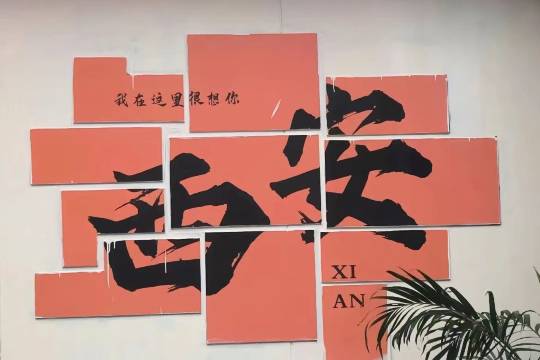 我在这里很想你
西安
XI
AN